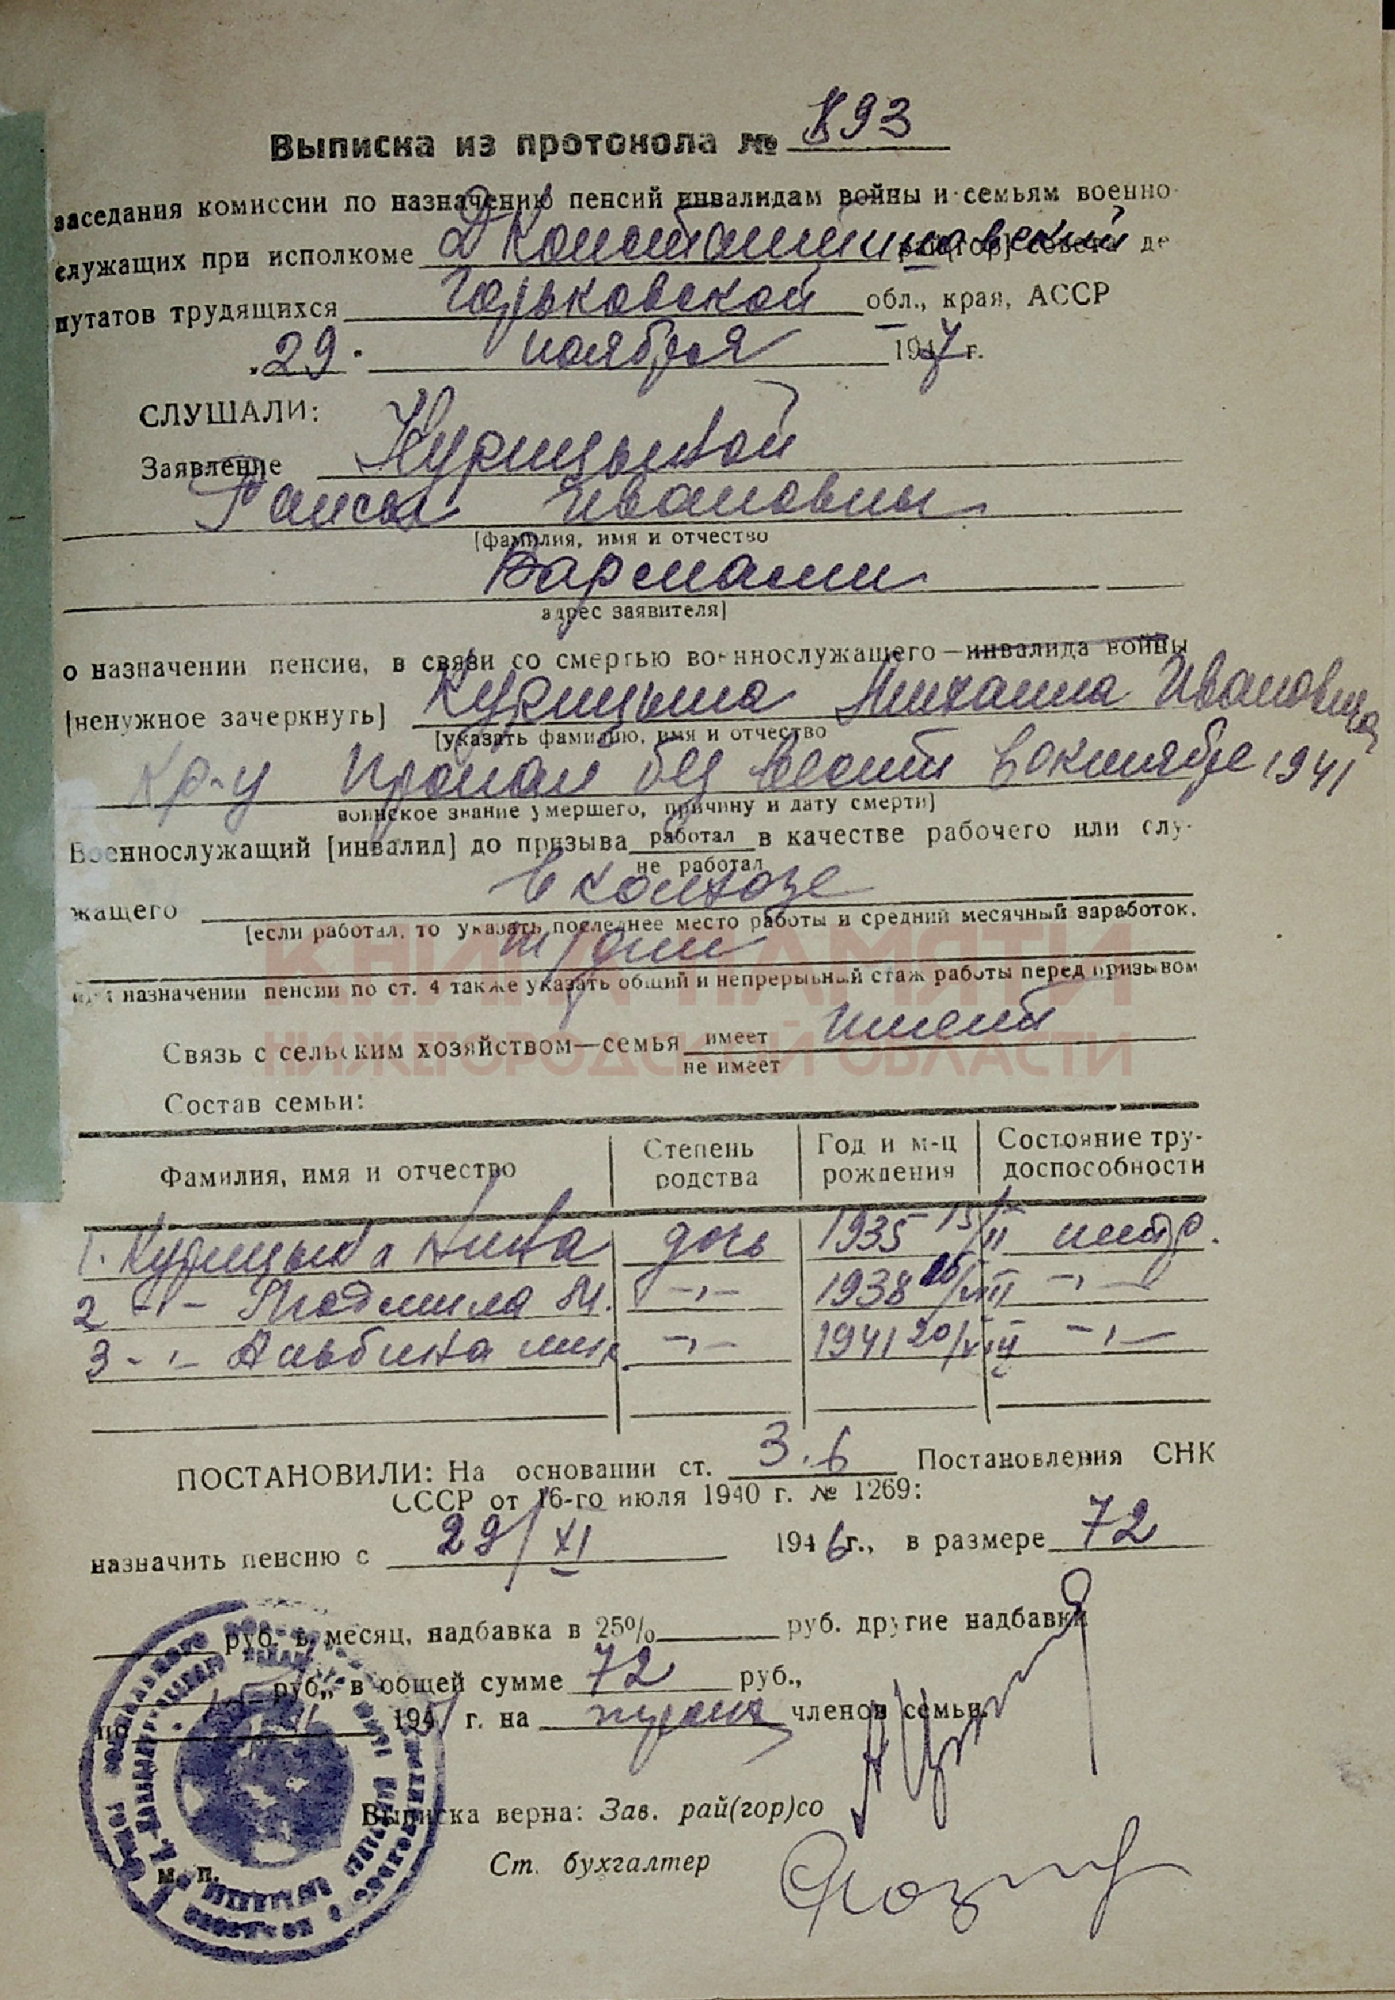 Выписка из протокола № 893
заседания комиссии по назначению пенсий инвалидам войны и семьям военно-
служащих при исполкоме Д Константиновский рай(гор)совета де-
путатов трудящихся Горьковской обл., края, АССР
29. ноября 1947 г.
СЛУШАЛИ:
Заявление Курицыной
Раисы Ивановны
[фамилия, имя и отчество
Вармали
адрес заявителя]
о назначении пенсии, в связи со смертью военнослужащего—инвалида войны
[ненужное зачеркнуть] Курицына Михаила Ивановича
[указать фамилию, имя и отчество
кр-ц пропал без вести в октябре 1941
воинское звание умершего, причину и дату смерти]
Военнослужащий [инвалид] до призыва работал в качестве рабочего или слу-
не работал
жащего в колхозе
[если работал, то указать последнее место работы и средний месячный заработок,
т/дни
при назначении пенсии по ст. 4 также указать общий и непрерывный стаж работы перед призывом
КНИГА ПАМЯТИ
НИЖЕГОРОДСКОЙ ОБЛАСТИ
Связь с сельским хозяйством—семья имеет имеет
не имеет
Состав семьи:
Фамилия, имя и отчество Степень родства Год и м-ц рождения Состояние тру-доспособности
1. Курицына Нина дочь 1935 15/II нетр.
2 -"- Людмила М. -"- 1938 /VIII -"-
3 -"- Альбина мих. -"- 1941 20/VIII -"-
ПОСТАНОВИЛИ: На основании ст. 3.6 Постановления СНК
СССР от 16-го июля 1940 г. № 1269:
назначить пенсию с 29/XI 1946 г., в размере 72
руб. в месяц, надбавка в 25% руб. другие надбавки
руб., в общей сумме 72 руб.,
по 194 г. на троих членов семьи.
Выписка верна: Зав. рай(гор)со
Ст. бухгалтер
м. п.